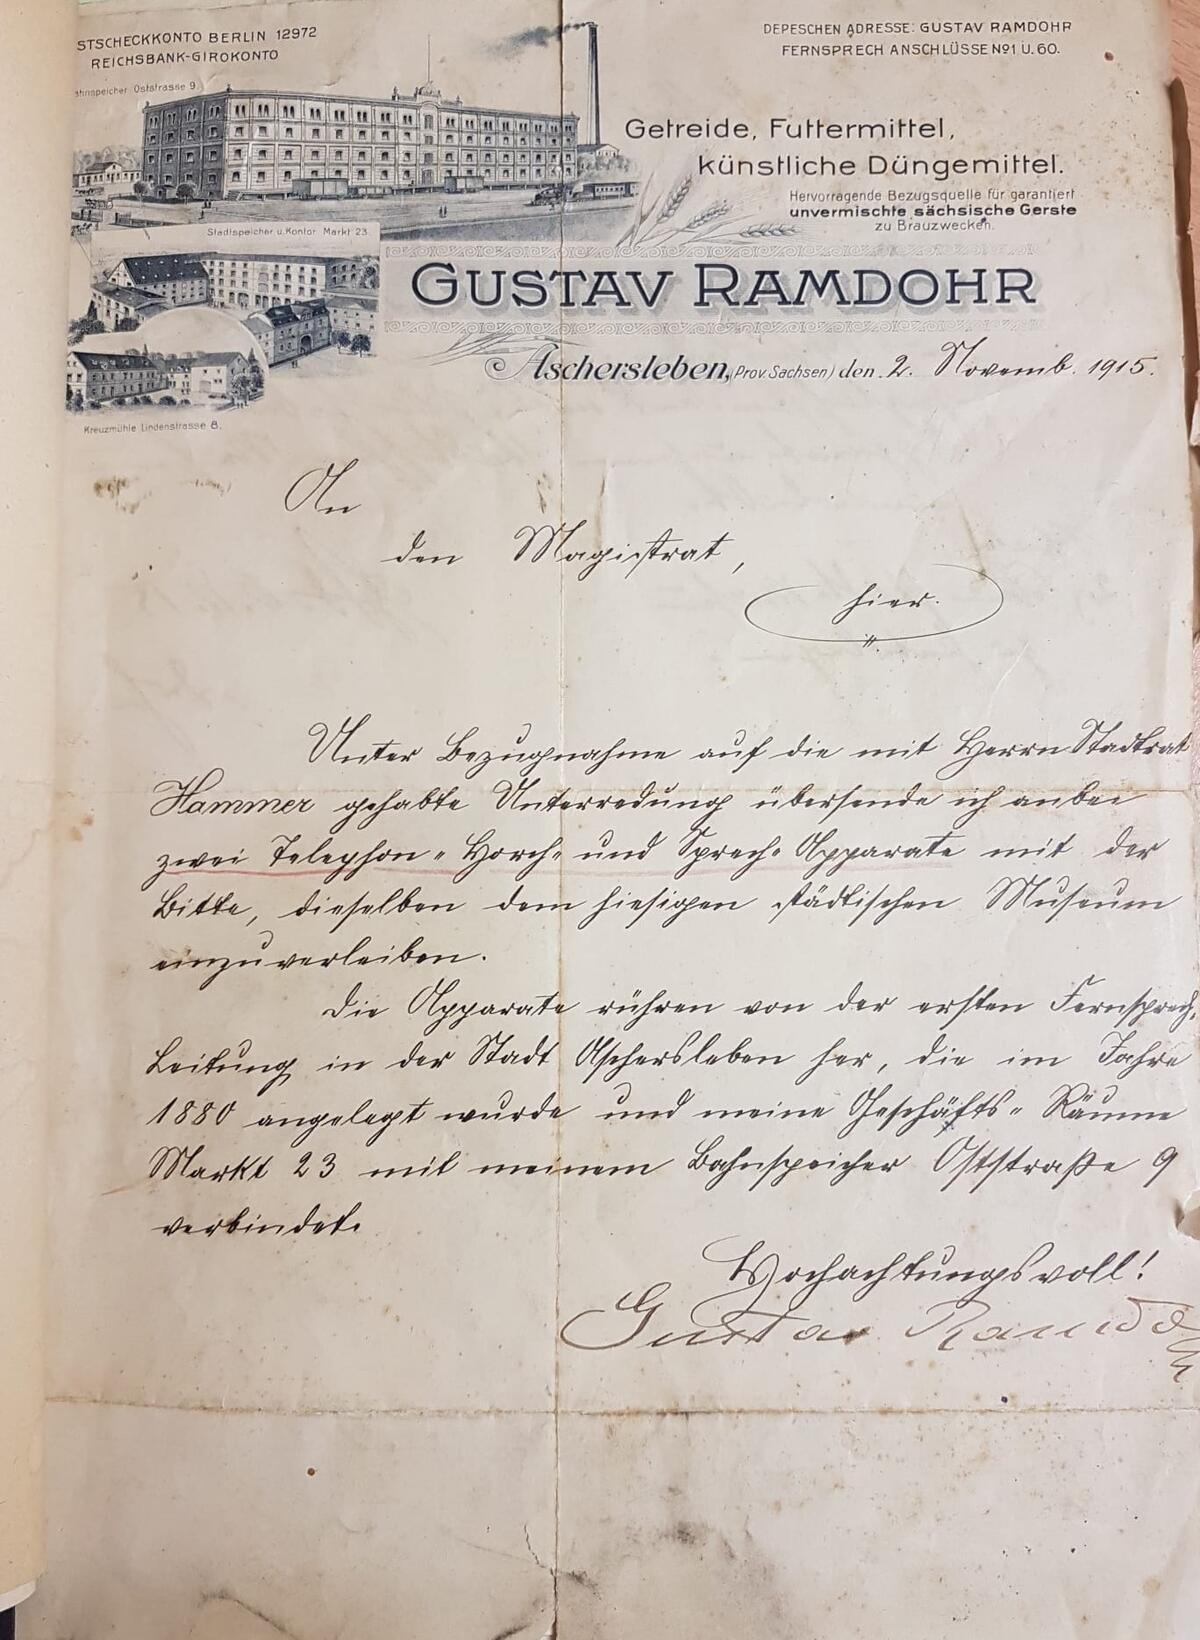 STSCHECKKONTO BERLIN 12972
REICHSBANK-GIROKONTO
DEPESCHEN ADRESSE: GUSTAV RAMDOHR
FERNSPRECH ANSCHLÜSSE Nº 1 U. 60.
ahnspeicher Oststrasse 9.
Getreide, Futtermittel,
künstliche Düngemittel.
Hervorragende Bezugsquelle für garantiert
unvermischte sächsische Gerste
zu Brauzwecken.
Stadtspeicher u. Kontor Markt 23
GUSTAV RAMDOHR
Aschersleben, (Prov. Sachsen) den 2. Novemb. 1915.
Kreuzmühle Lindenstrasse 8.
An
den Magistrat,
hier.
Unter Bezugnahme auf die mit Herrn Stadtrat
Hammer gehabte Unterredung übersende ich anbei
zwei Telephon- Horch- und Sprech- Apparate mit der
Bitte, dieselben dem hiesigen städtischen Museum
einzuverleiben.
Die Apparate rühren von der ersten Fernsprech-
Leitung in der Stadt Aschersleben her, die im Jahre
1880 angelegt wurde und meine Geschäfts- Räume
Markt 23 mit meinem Bahnspeicher Oststraße 9
verbindet.
Hochachtungsvoll!
Gustav Ramdohr